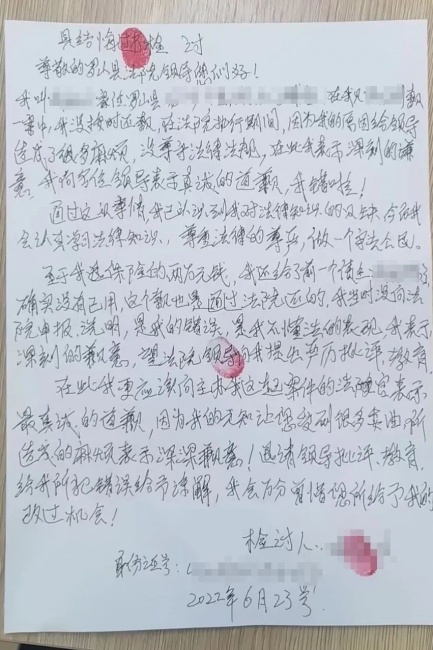 具结悔过 检讨
尊敬的罗山县法院领导您们好！
我叫 家住罗山县 在我
一案中，我没按时还款，在法院执行期间，因为我的原因给领导
造成了很多麻烦，没尊守法律法规，在此表示深刻的歉
意。我向各位领导表示真诚的道歉，我错啦！
通过这次事情，我已认识到我对法律知识的欠缺，今后我
会认真学习法律知识，尊重法律的尊严，做一个守法公民。
至于我退保险的两万元钱，我还给了前一个债主
确实没有己用，这个款也是通过法院还的，我当时没向法
院申报说明，是我的错误，是我不懂法的表现，我表示
深刻的歉意，望法院领导向我提出严厉批评，教育
在此我更应该向主办我这起案件的法官表示
最真诚的道歉，因为我的无知让您受到很多委曲，所
造成的麻烦表示深深歉意！恳请领导批评、教育，
给我所犯错误给予谅解，我会万分珍惜您所给予我的
改过机会！
检讨人：
身份证号：
2022年6月23号